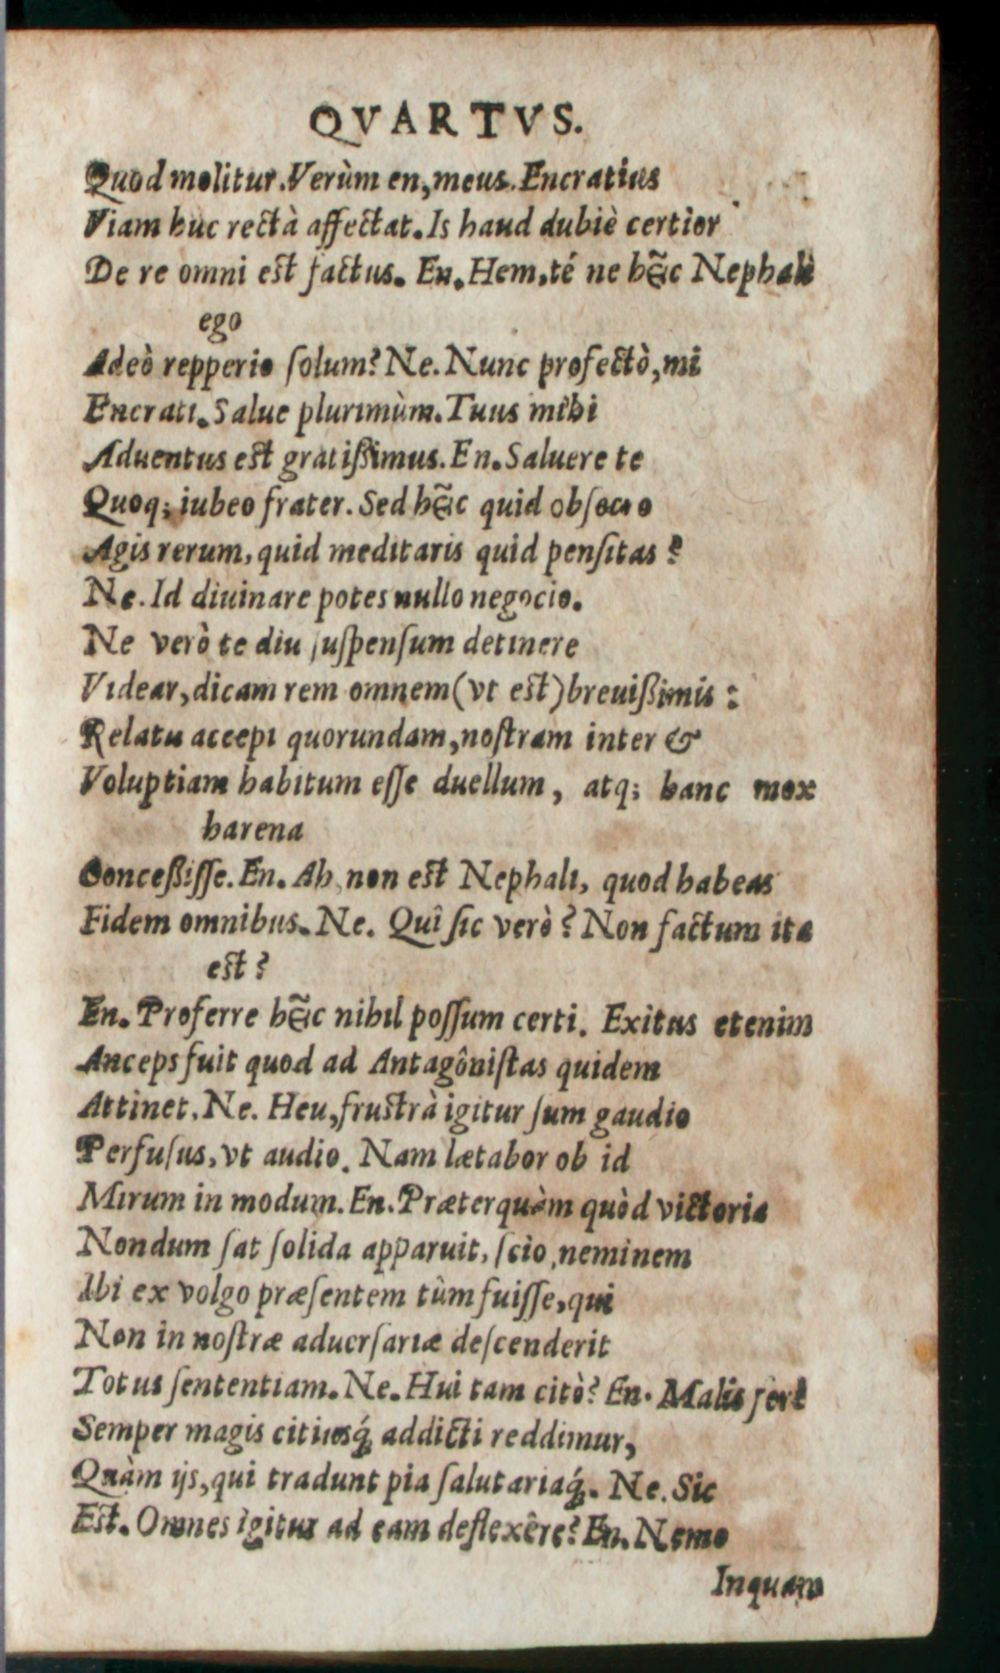 QVARTVS.
Quod molitur. Verùm en, meus. Encratius
Viam huc rectà affectat. Is haud dubiè certior
De re omni est factus. En. Hem, té ne hĩc Nephali
ego
Adeò repperio ſolum? Ne. Nunc profectò, mi
Encrati. Salue plurimùm. Tuus mihi
Aduentus est gratißimus. En. Saluere te
Quoq; iubeo frater. Sed hĩc quid obſecro
Agis rerum, quid meditaris quid penſitas?
Ne. Id diuinare potes nullo negocio.
Ne verò te diu ſuſpenſum detinere
Videar, dicam rem omnem (vt est) breuißimis:
Relatu accepi quorundam, noſtram inter &
Voluptiam habitum eſſe duellum, atq; hanc mox
harena
Conceßiſſe. En. Ah, non est Nephali, quod habeas
Fidem omnibus. Ne. Quî ſic verò? Non factum ita
est?
En. Proferre hĩc nihil poſſum certi. Exitus etenim
Anceps fuit quod ad Antagôniſtas quidem
Attinet. Ne. Heu, frustrà igitur ſum gaudio
Perfuſus, vt audio. Nam lætabor ob id
Mirum in modum. En. Præterquàm quòd victoria
Nondum ſat ſolida apparuit, ſcio, neminem
Ibi ex volgo præſentem tùm fuiſſe, qui
Non in noſtræ aduerſariæ deſcenderit
Totus ſententiam. Ne. Hui tam citò? En. Malis ferè
Semper magis citiusq́; addicti reddimur,
Quàm ijs, qui tradunt pia ſalutariaq́;. Ne. Sic
Est. Omnes igitur ad eam deflexêre? En. Nemo
Inquam